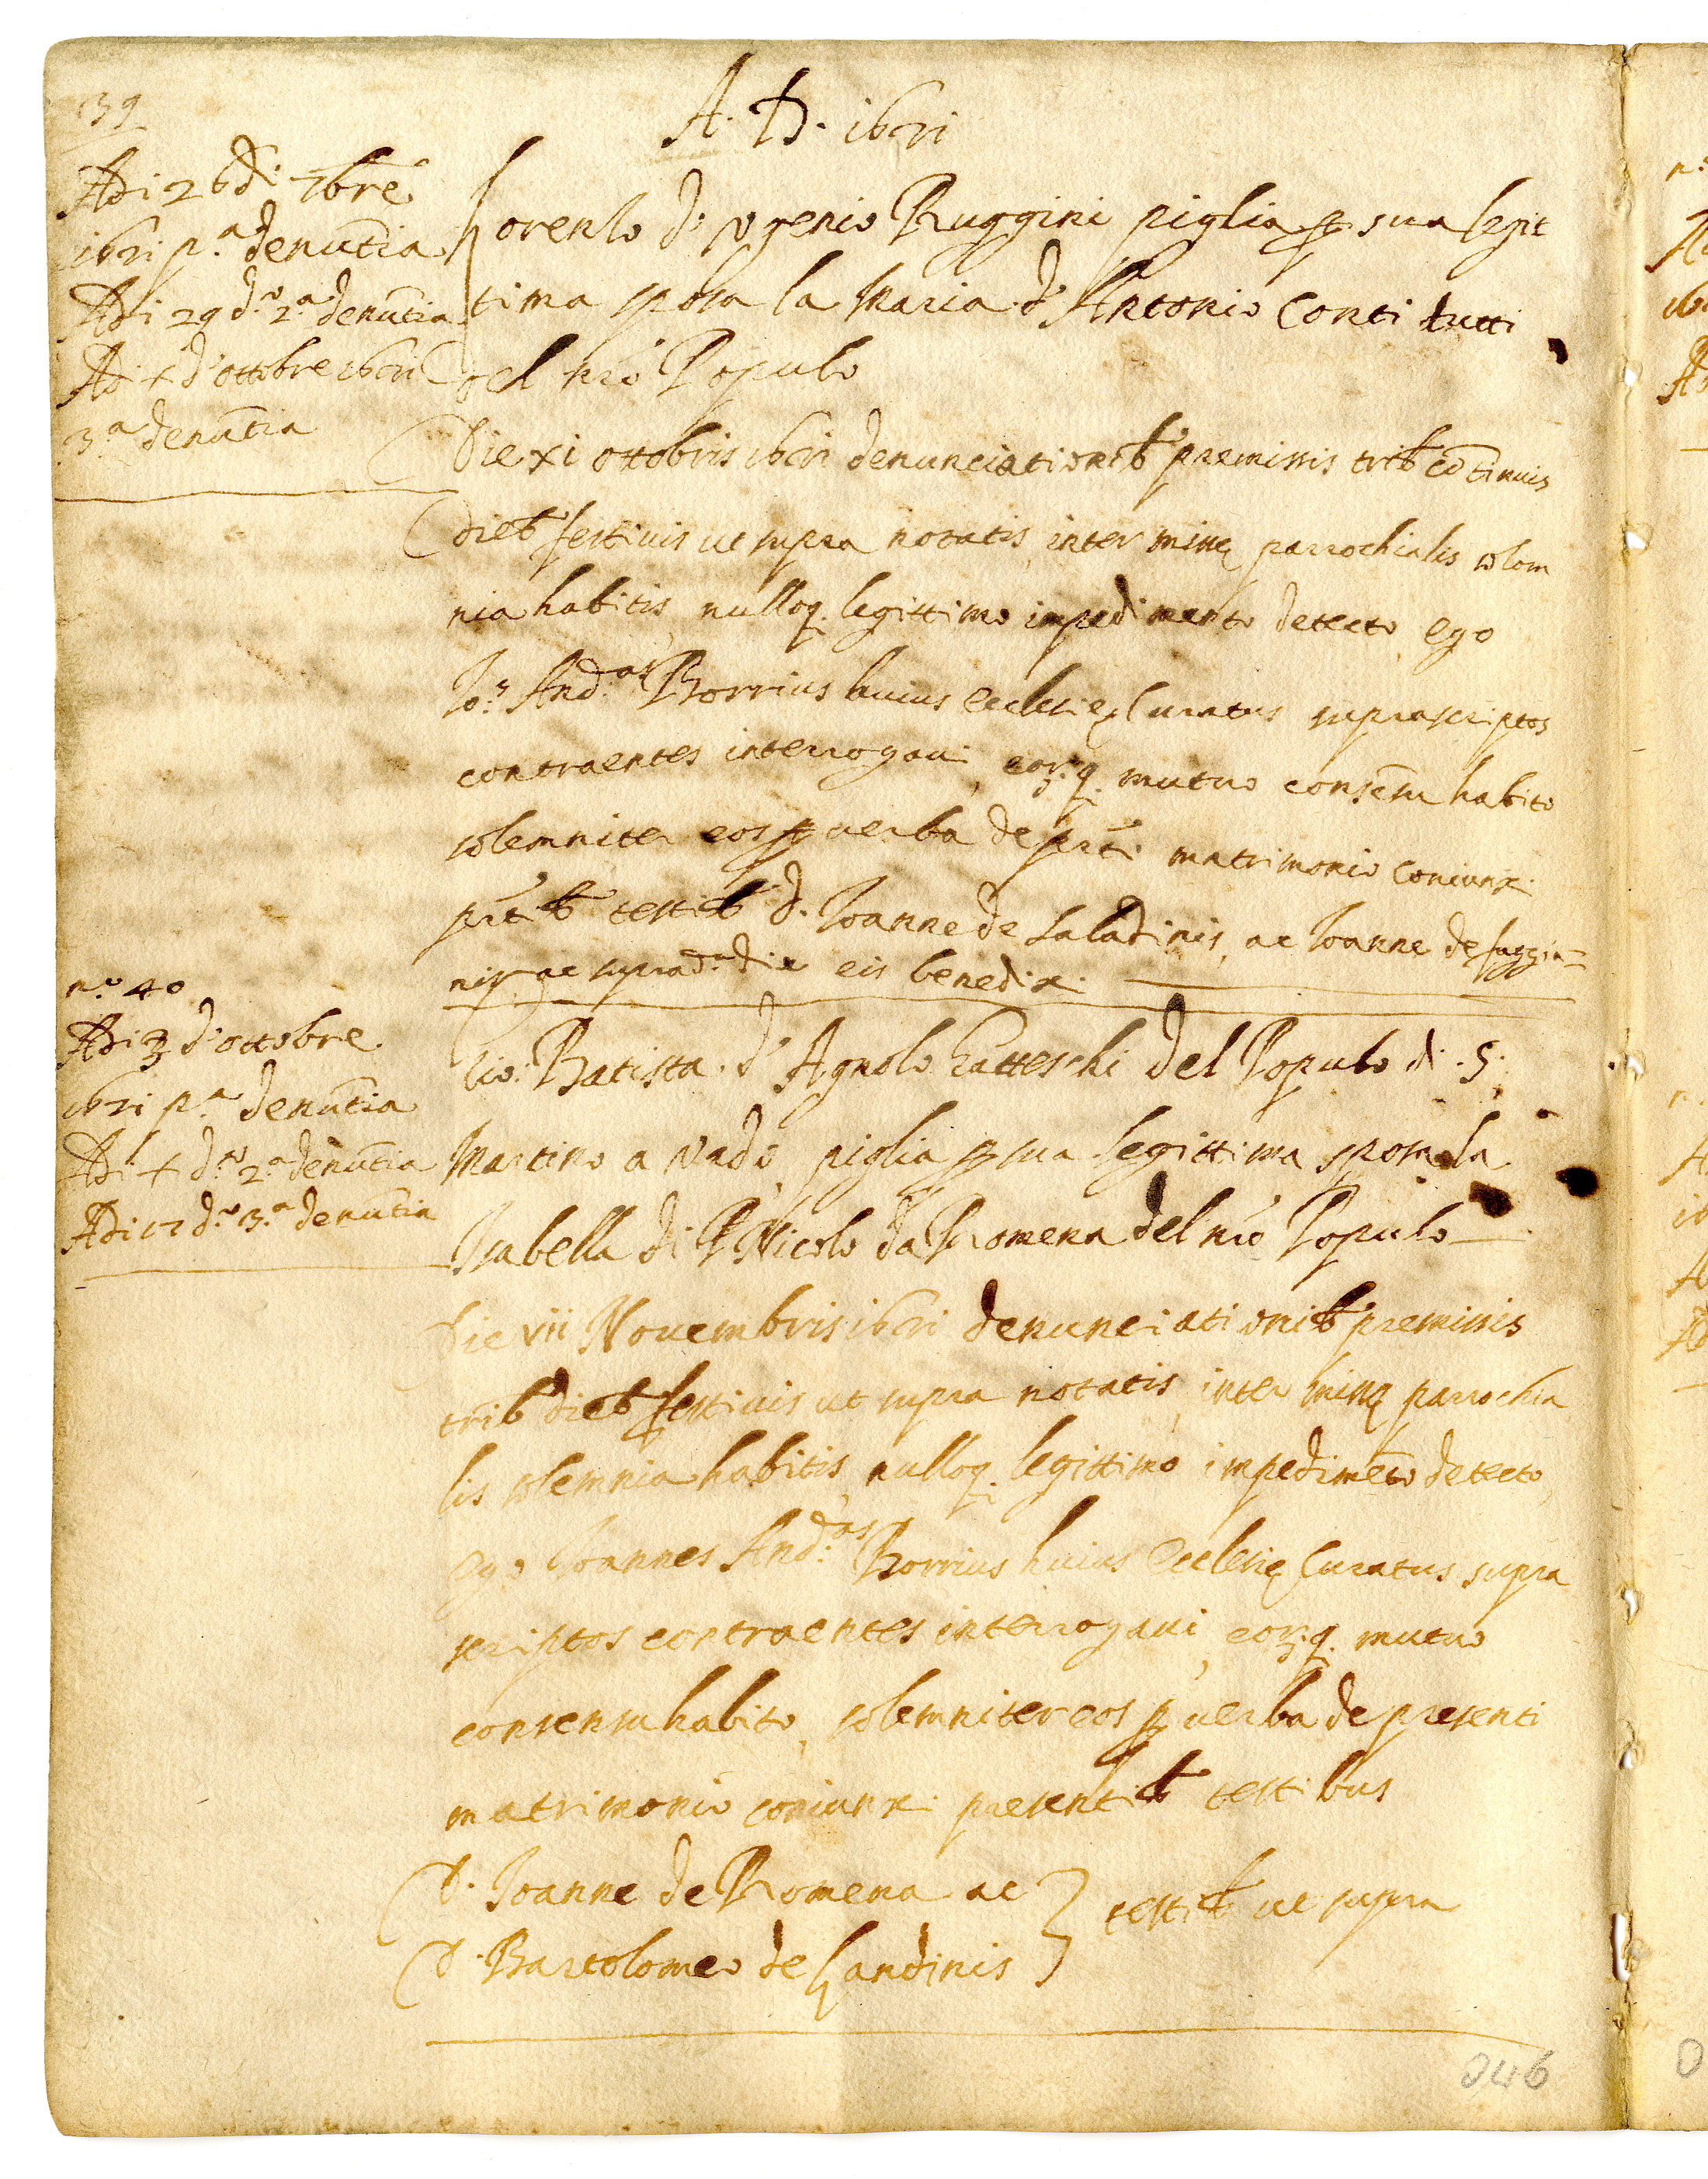 A. D. 1621
139
Adi 26 di 7bre
1621 p.a denutia
Adi 29 d.o 2.a denutia
Adi X d'ottobre 1621
3.a denutia
Lorenzo di Ruggini piglia p sua legit
tima sposa la Maria d'Antonio Conti tutti
del nro Populo
Die xi ottobris 1621 denunciationib premissis trib cotinuis
dieb festiuis ut supra notatis, inter missę parrochialis solem
nia habitis, nulloq. legittimo impedimento detecto, ego
Jo: And.as Borrius huius Ecclesię Curatus suprascriptos
contraentes interrogaui, eor.q. mutuo consesu habito
solemniter eos p uerba de prti matrimonio coniunxi
prtib testib d. Joanne de Saladinis, ac Joanne de
nis, ac suprad.a die eis benedixi.
n.o 40
Adi 3 d'ottobre
1621 p.a denutia
Adi X d.o 2.a denutia
Adi 17 d.o 3.a denutia
Gio: Batista d'Agnolo Gatteschi del Populo di S.
Martino a Vado, piglia p sua legittima sposa la
Isabella di Nicolo da Romena del nro Populo
Die vii Nouembris 1621 denunciationib premissis
trib dieb festiuis ut supra notatis, inter missę parrochia
lis solemnia habitis, nulloq. legittimo impedimeto detecto,
Ego Joannes And.as Borrius huius Ecclesię Curatus supra
scriptos contraentes interrogaui, eor.q. mutuo
consensu habito, solemniter eos p uerba de presenti
matrimonio coniunxi presentib testibus
D. Joanne de Romena ac
D. Bartolomeo de Landinis
testib ut supra
046